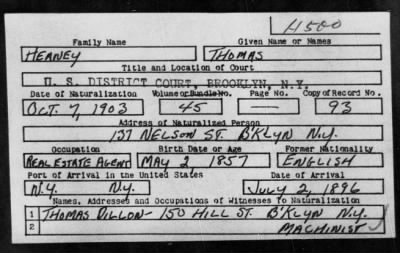 H500
Family Name Given Name or Names
HEANEY THOMAS
Title and Location of Court
U. S. DISTRICT COURT, BROOKLYN, N.Y.
Date of Naturalization Volume or Bundle No. Page No. Copy of Record No.
OCT. 7, 1903 45 — 93
Address of Naturalized Person
137 NELSON ST. B'KLYN N.Y.
Occupation Birth Date or Age Former Nationality
REAL ESTATE AGENT MAY 2 1857 ENGLISH
Port of Arrival in the United States Date of Arrival
N.Y. N.Y. JULY 2, 1896
Names, Addresses and Occupations of Witnesses To Naturalization
1 THOMAS DILLON - 150 HILL ST. B'KLYN N.Y.
2 MACHINIST